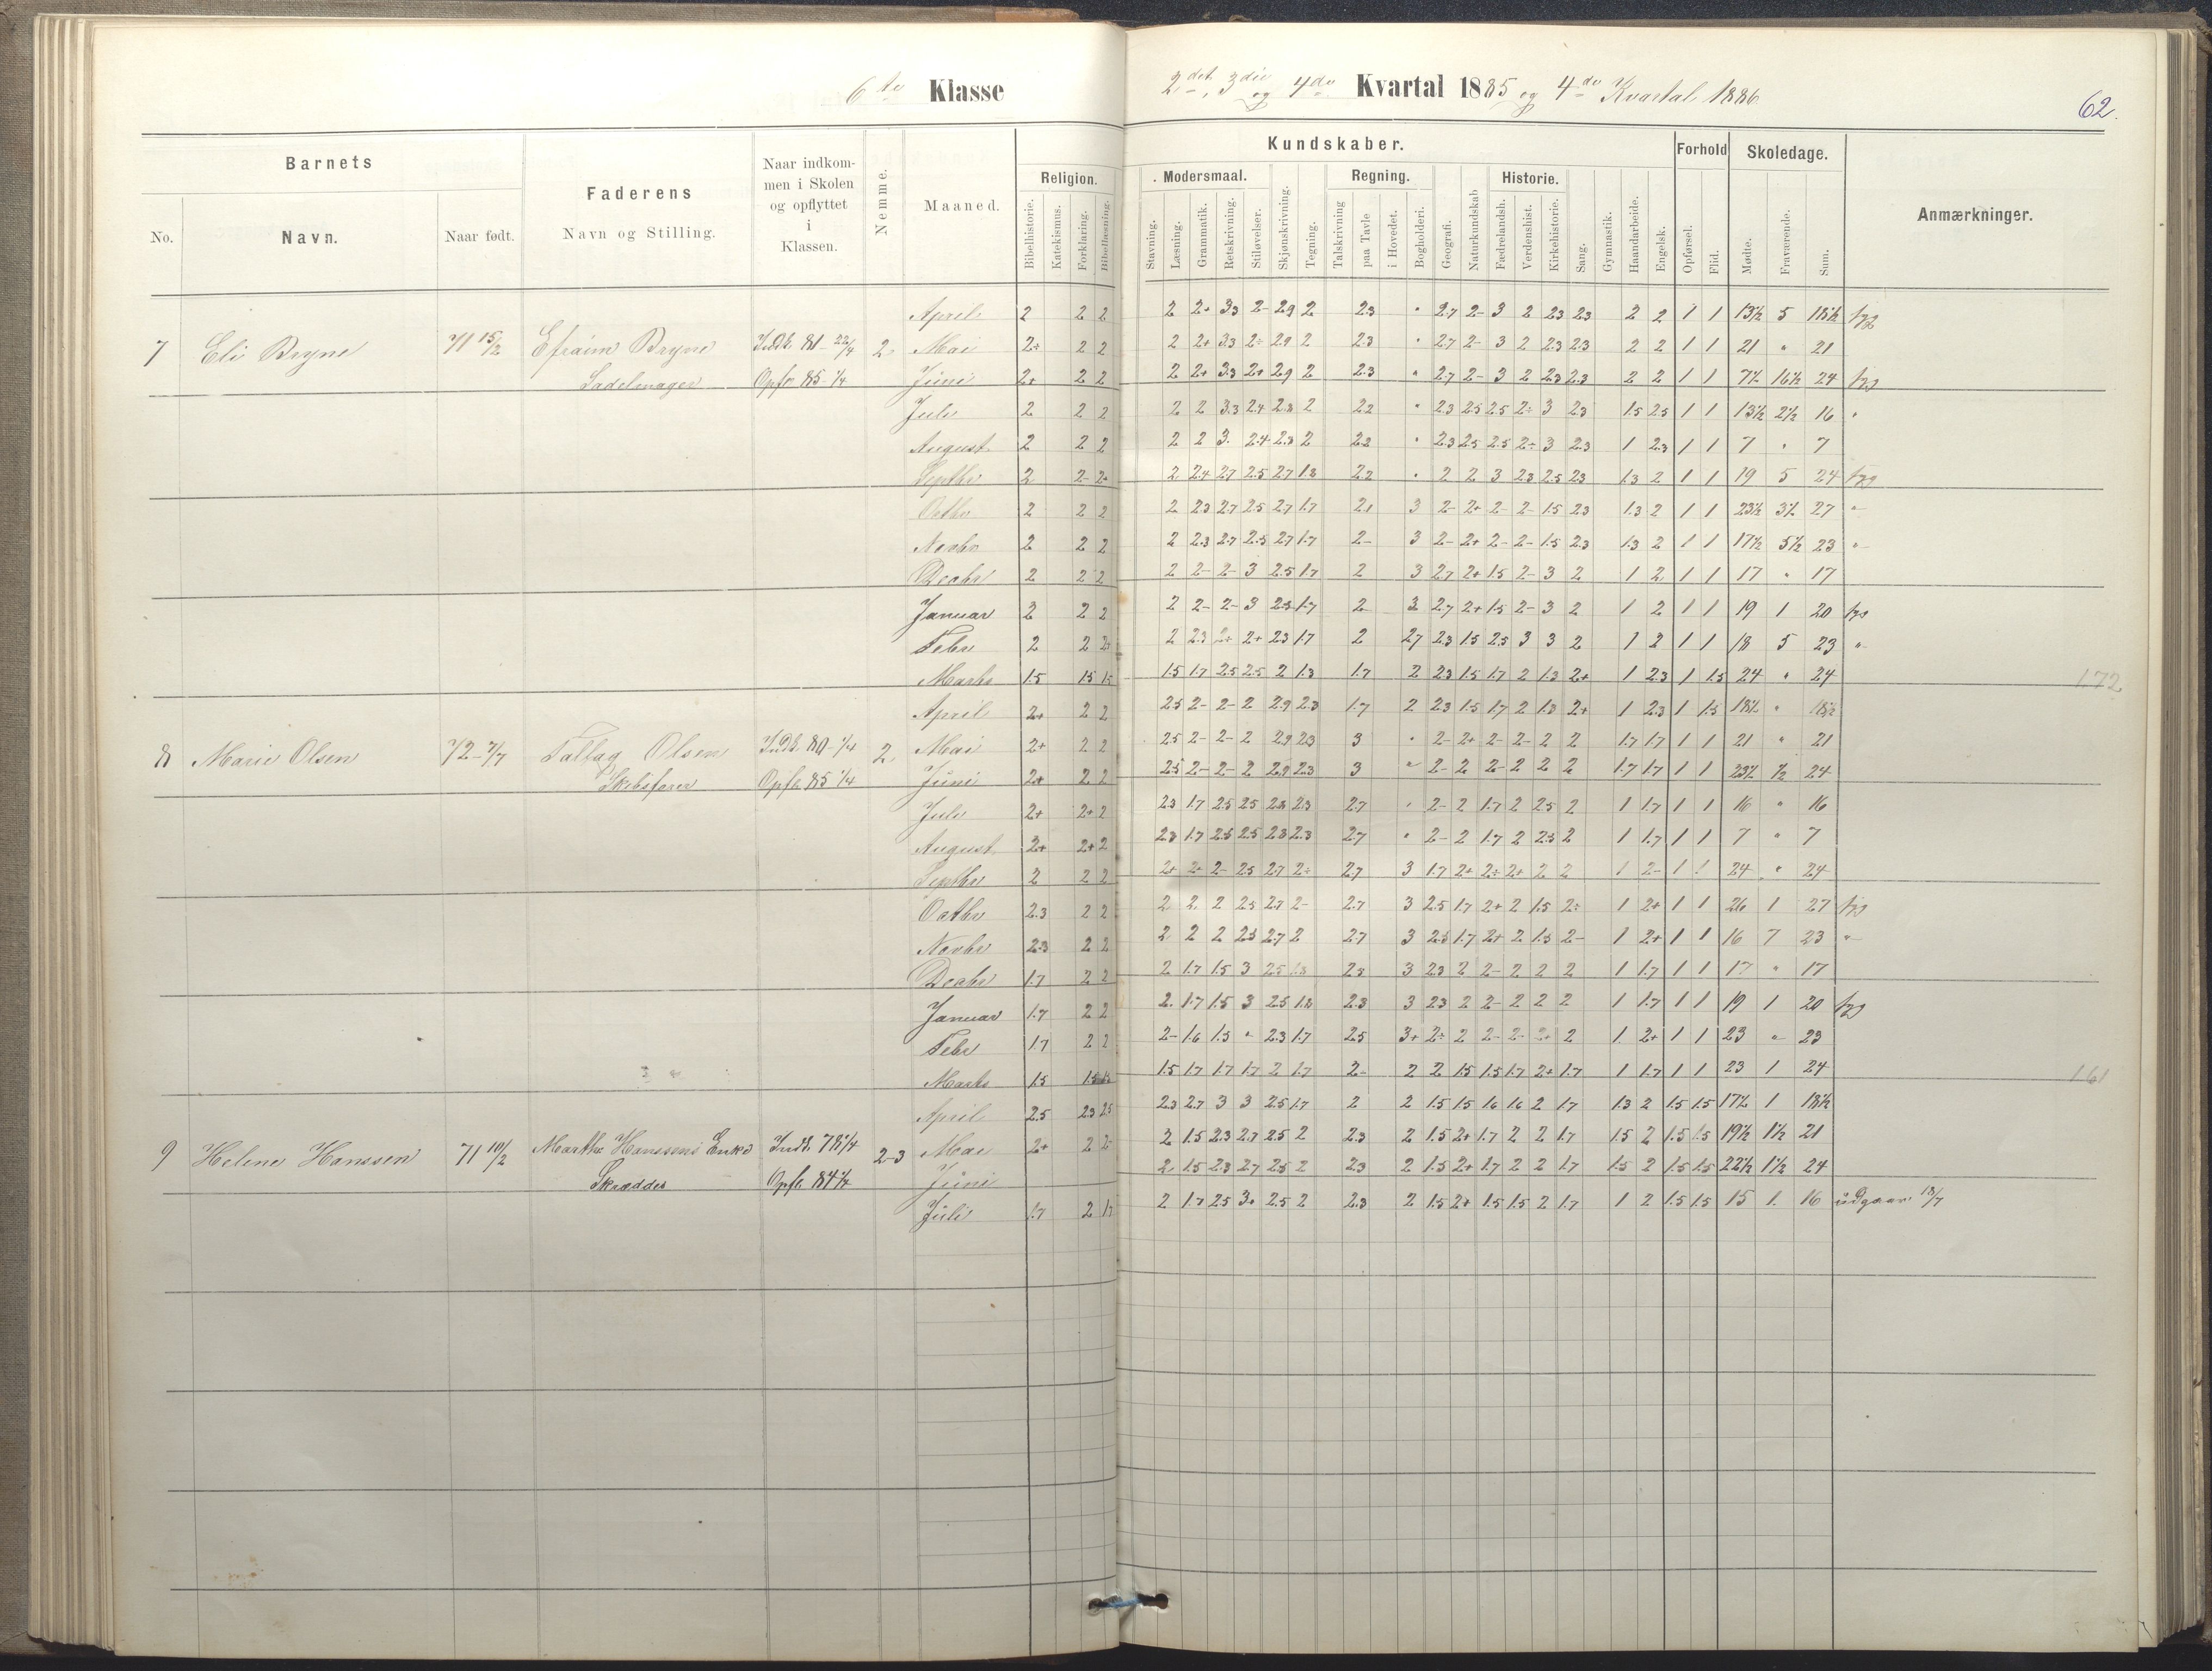 6te Klasse
2det, 3die og 4de Kvartal 1885 og 4de Kvartal 1886
62.
Barnets
Faderens
Navn og Stilling.
Naar indkom-
men i Skolen
og opflyttet
i
Klassen.
Nemme.
Maaned.
Religion.
Kundskaber.
Forhold
Skoledage.
Anmærkninger.
Modersmaal.
Regning.
Historie.
No.
Navn.
Naar født.
Bibelhistorie.
Katekismus.
Forklaring.
Bibellæsning.
Stavning.
Læsning.
Grammatik.
Retskrivning.
Stiløvelser.
Skjønskrivning.
Tegning.
Talskrivning
paa Tavle
i Hovedet.
Bogholderi.
Geografi.
Naturkundskab
Fædrelandsh.
Verdenshist.
Kirkehistorie.
Sang.
Gymnastik.
Haandarbeide.
Engelsk.
Opførsel.
Flid.
Mødte.
Fraværende.
Sum.
April 2 2 2 2 2+ 3.3 2- 2.9 2 2.3 " 2.7 2- 3 2 2.3 2.3 2 2 1 1 13½ 5 18½
7 Eli Bryne 71 15/2 Efraim Bryne Indk. 81 22/4 2 Mai 2÷ 2 2 2 2+ 3.3 2÷ 2.9 2 2.3 " 2.7 2- 3 2 2.3 2.3 2 2 1 1 21 " 21
Sadelmager Opfl. 85 1/4 Juni 2+ 2 2 2 2+ 3.3 2+ 2.9 2 2.3 " 2.7 2- 3 2 2.3 2.3 2 2 1 1 7½ 16½ 24
Juli 2 2 2 2 2 3.3 2.4 2.8 2 2.2 " 2.3 2.5 2.5 2÷ 3 2.3 1.5 2.5 1 1 13½ 2½ 16 "
August 2 2 2 2 2 3. 2.4 2.8 2 2.2 " 2.3 2.5 2.5 2÷ 3 2.3 1 2.3 1 1 7 " 7
Septbr 2 2- 2+ 2 2.4 2.7 2.5 2.7 1.8 2.2 " 2 2 3 2.3 2.5 2.3 1.3 2 1 1 19 5 24
Octbr 2 2 2 2 2.3 2.7 2.5 2.7 1.7 2.1 3 2- 2+ 2- 2- 1.5 2.3 1.3 2 1 1 23½ 3½ 27 "
Novbr 2 2 2 2 2.3 2.7 2.5 2.7 1.7 2- 3 2- 2+ 2- 2- 1.5 2.3 1.3 2 1 1 17½ 5½ 23 "
Decbr 2 2 2 2 2- 2- 3 2.5 1.7 2 3 2.7 2+ 1.5 2- 3 2 1 2 1 1 17 " 17
Januar 2 2 2 2 2- 2- 3 2.5 1.7 2 3 2.7 2+ 1.5 2- 3 2 1 2 1 1 19 1 20
Febr 2 2 2 2 2.3 2+ 2+ 2.3 1.7 2 2.7 2.3 1.5 2.5 3 3 2 1 2 1 1 18 5 23 "
Marts 1.5 1.5 1.5 1.5 1.7 2.5 2.5 2 1.3 1.7 2 2.3 1.5 1.7 2 1.3 2+ 1 2.3 1 1.5 24 " 24 172
April 2+ 2 2 2.5 2- 2- 2 2.9 2.3 1.7 2 2.3 1.5 1.7 2 1.3 2+ 1 2.3 1 1.5 18½ " 18½
8 Marie Olsen 72 7/7 Olsen Indk. 80 1/4 2 Mai 2+ 2 2 2.5 2- 2- 2 2.9 2.3 3 " 2- 2+ 2- 2- 2 2 1.7 1.7 1 1 21 " 21
Skibsfører Opfl. 85 1/4 Juni 2+ 2 2 2.5 2- 2- 2 2.9 2.3 3 " 2- 2 2- 2 2 2 1.7 1.7 1 1 23½ ½ 24
Juli 2+ 2+ 2 2.3 1.7 2.5 2.5 2.8 2.3 2.7 " 2- 2 1.7 2 2.5 2 1 1.7 1 1 16 " 16
August 2+ 2+ 2 2.3 1.7 2.5 2.5 2.8 2.3 2.7 " 2- 2 1.7 2 2.5 2 1 1.7 1 1 7 " 7
Septbr 2 2 2 2+ 2+ 2- 2.5 2.7 2÷ 2.7 3 1.7 2+ 2÷ 2+ 2 2 1 2- 1 1 24 " 24
Octbr 2.3 2 2 2 2 2 2.5 2.7 2- 2.7 3 2.5 1.7 2+ 2 1.5 2÷ 1 2+ 1 1 26 1 27
Novbr 2.3 2 2 2 2 2 2.5 2.7 2 2.7 3 2.5 1.7 2+ 2 1.5 2- 1 2+ 1 1 16 7 23 "
Decbr 1.7 2 2 2 1.7 1.5 3 2.5 1.8 2.3 3 2.3 2 2- 2 2 2 1 1.7 1 1 17 " 17
Januar 1.7 2 2 2. 1.7 1.5 3 2.5 1.8 2.3 3 2.3 2 2- 2 2 2 1 1.7 1 1 19 1 20
Febr 1.7 2 2 2- 1.6 1.5 " 2.3 1.7 2.5 3+ 2÷ 2 2- 2- 2+ 2 1 2+ 1 1 23 " 23
Marts 1.5 1.5 1.5 1.7 1.7 1.7 2 1.7 2- 2 2 1.5 1.5 1.7 2+ 1.7 1 1.7 1 1 23 1 24 161
April 2.5 2.3 2.5 2.3 2.7 3 3 2.5 1.7 2 2 1.5 1.5 1.6 1.6 2 1.7 1.3 2 1.5 1.5 17½ 1 18½
9 Helene Hanssen 71 10/2 Marthe Hanssens Enke Indk. 78 1/4 2-3 Mai 2+ 2 2- 2 1.5 2.3 2.7 2.5 2 2.3 2 1.5 2+ 1.7 2 2 1.7 1.5 2 1.5 1.5 19½ 1½ 21
Skrædder Opfl. 84 1/4 Juni 2 1.5 2.3 2.7 2.5 2 2.3 2 1.5 2+ 1.7 2 2 1.7 1.5 2 1.5 1.5 22½ 1½ 24
Juli 1.7 2 1.7 2 1.7 2.5 3+ 2.5 2 2.3 2 1.5 2+ 1.5 1.5 2 1.7 1 2 1.5 1.5 15 1. 16 udgaar 18/7